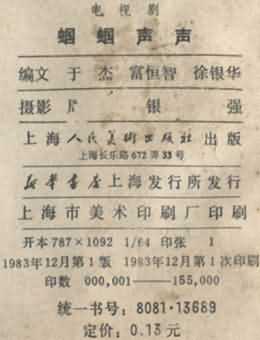 电视剧
蝈蝈声声
编文 于 杰 富恒智 徐银华
摄影 银 强
上海人民美术出版社 出版
上海长乐路672弄33号
新华书店上海发行所发行
上海市美术印刷厂印刷
开本787×1092 1/64 印张 1
1983年12月第1版 1983年12月第1次印刷
印数 000,001——155,000
统一书号：8081·13689
定价：0.13元